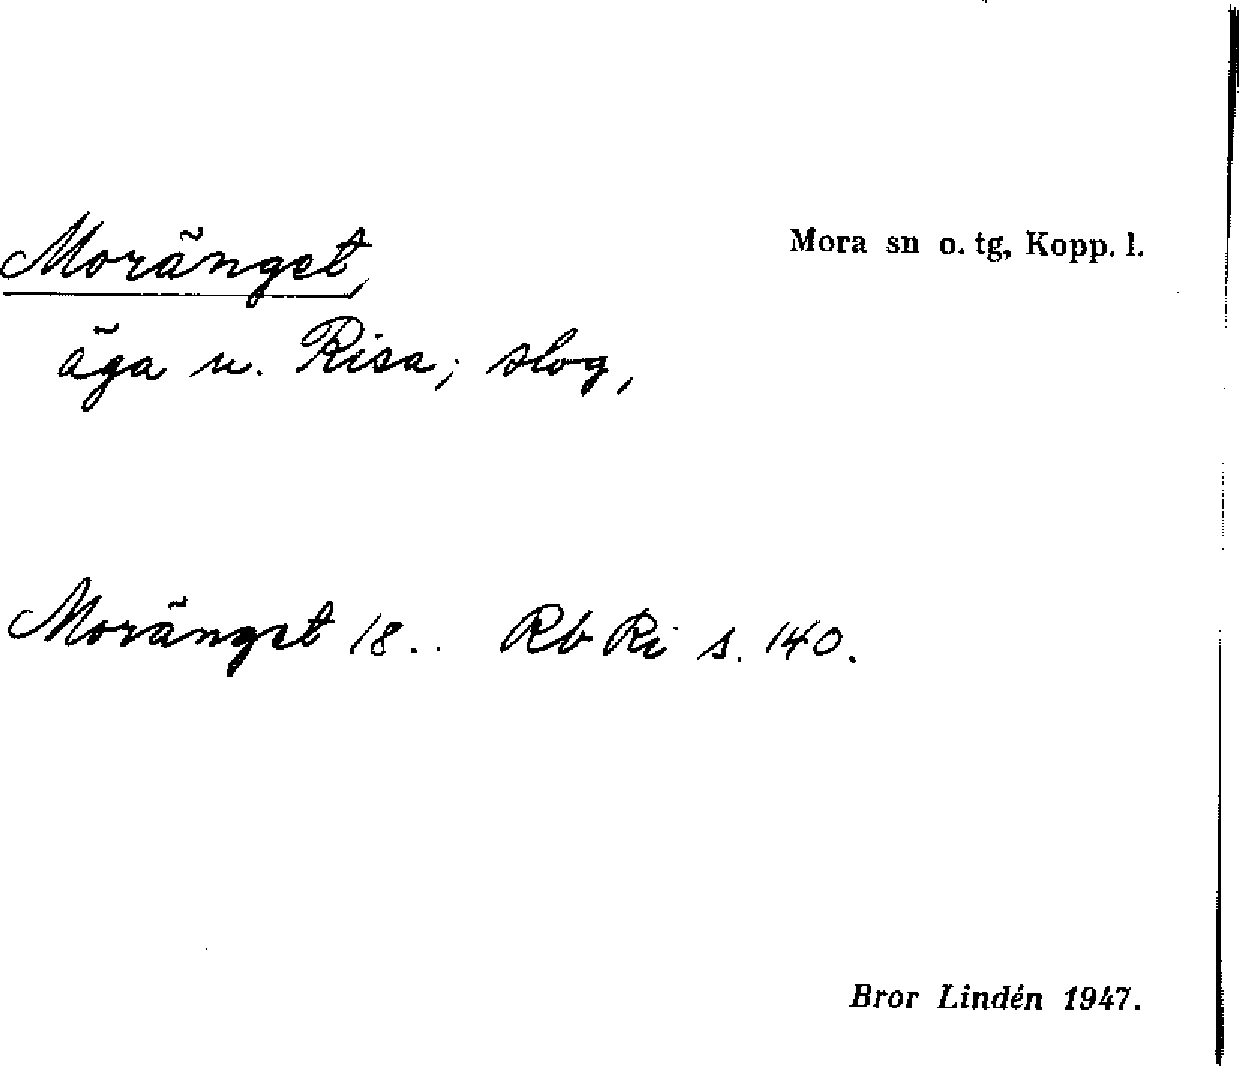 Moränget,
Mora sn o. tg, Kopp. l.
äga u. Risa; slog,
Moränget 18.. Rb Ri s. 140.
Bror Lindén 1947.